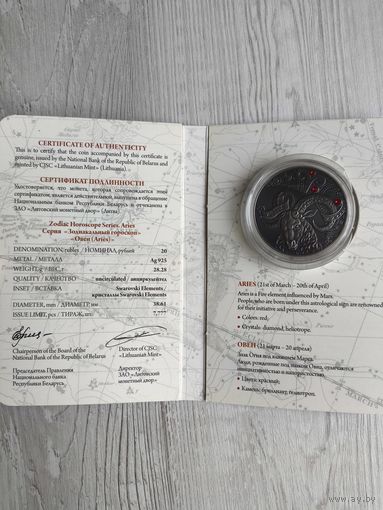 CERTIFICATE OF AUTHENTICITY
This is to certify that the coin accompanied by this certificate is
genuine, issued by the National Bank of the Republic of Belarus and
minted by CJSC «Lithuanian Mint» (Lithuania).
СЕРТИФИКАТ ПОДЛИННОСТИ
Удостоверяется, что монета, которая сопровождается этим
сертификатом, является действительной, выпущена в обращение
Национальным банком Республики Беларусь и отчеканена в
ЗАО «Литовский монетный двор» (Литва).
Zodiac Horoscope Series. Aries
Серия «Зодиакальный гороскоп»
«Овен (Aries)»
DENOMINATION, rubles / НОМИНАЛ, рублей 20
METAL / МЕТАЛЛ Ag 925
WEIGHT, g / ВЕС, г 28.28
QUALITY / КАЧЕСТВО uncirculated / анциркулейтед
INSET / ВСТАВКА Swarovski Elements /
кристаллы Swarovski Elements
DIAMETER, mm / ДИАМЕТР, мм 38.61
ISSUE LIMIT, pcs / ТИРАЖ, шт. 7,777
Chairperson of the Board of the
National Bank of the Republic of Belarus
Director of CJSC
«Lithuanian Mint»
Председатель Правления
Национального банка
Республики Беларусь
Директор
ЗАО «Литовский
монетный двор»
ARIES (21st of March – 20th of April)
Aries is a Fire element influenced by Mars.
People, who are born under this astrological sign are renowned
for their initiative and perseverance.
Colors: red,
Crystals: diamond, heliotrope.
ОВЕН (21 марта – 20 апреля)
Знак Огня под влиянием Марса.
Люди, рожденные под знаком Овна, отличаются
инициативностью и напористостью.
Цвета: красный,
Камень: бриллиант, гелиотроп.
www.ay.by